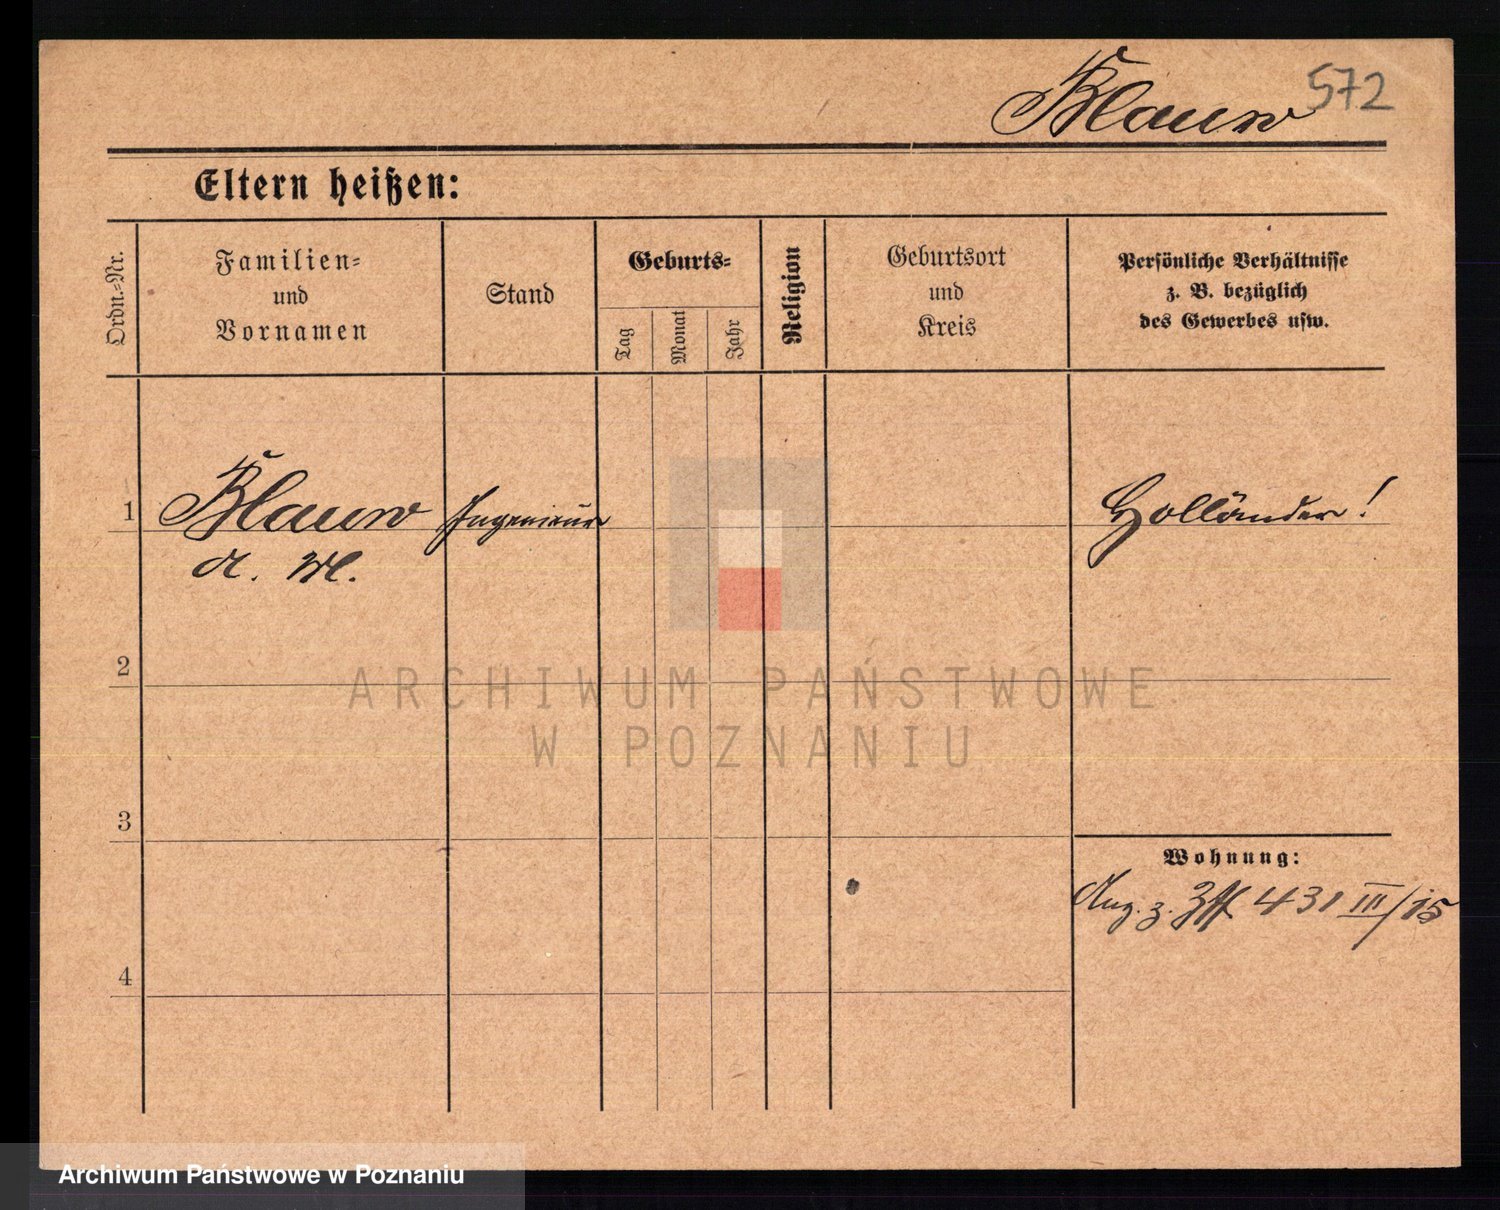 Blauw 572
Eltern heißen:
Ordn.-Nr.
Familien-
und
Vornamen
Stand
Geburts-
Tag
Monat
Jahr
Religion
Geburtsort
und
Kreis
Persönliche Verhältnisse
z. B. bezüglich
des Gewerbes usw.
1 Blauw Ingenieur Holländer!
A. M.
2
ARCHIWUM PAŃSTWOWE
W POZNANIU
3
Wohnung:
Ang. z. 431 III/15
4
Archiwum Państwowe w Poznaniu